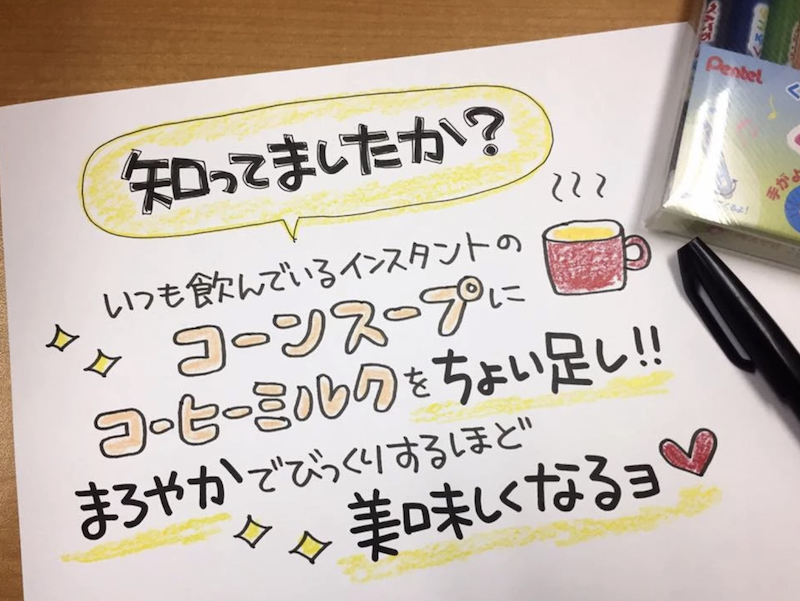 知ってましたか?
いつも飲んでいるインスタントの
コーンスープに
コーヒーミルクをちょい足し!!
まろやかでびっくりするほど
美味しくなるヨ
Pentel